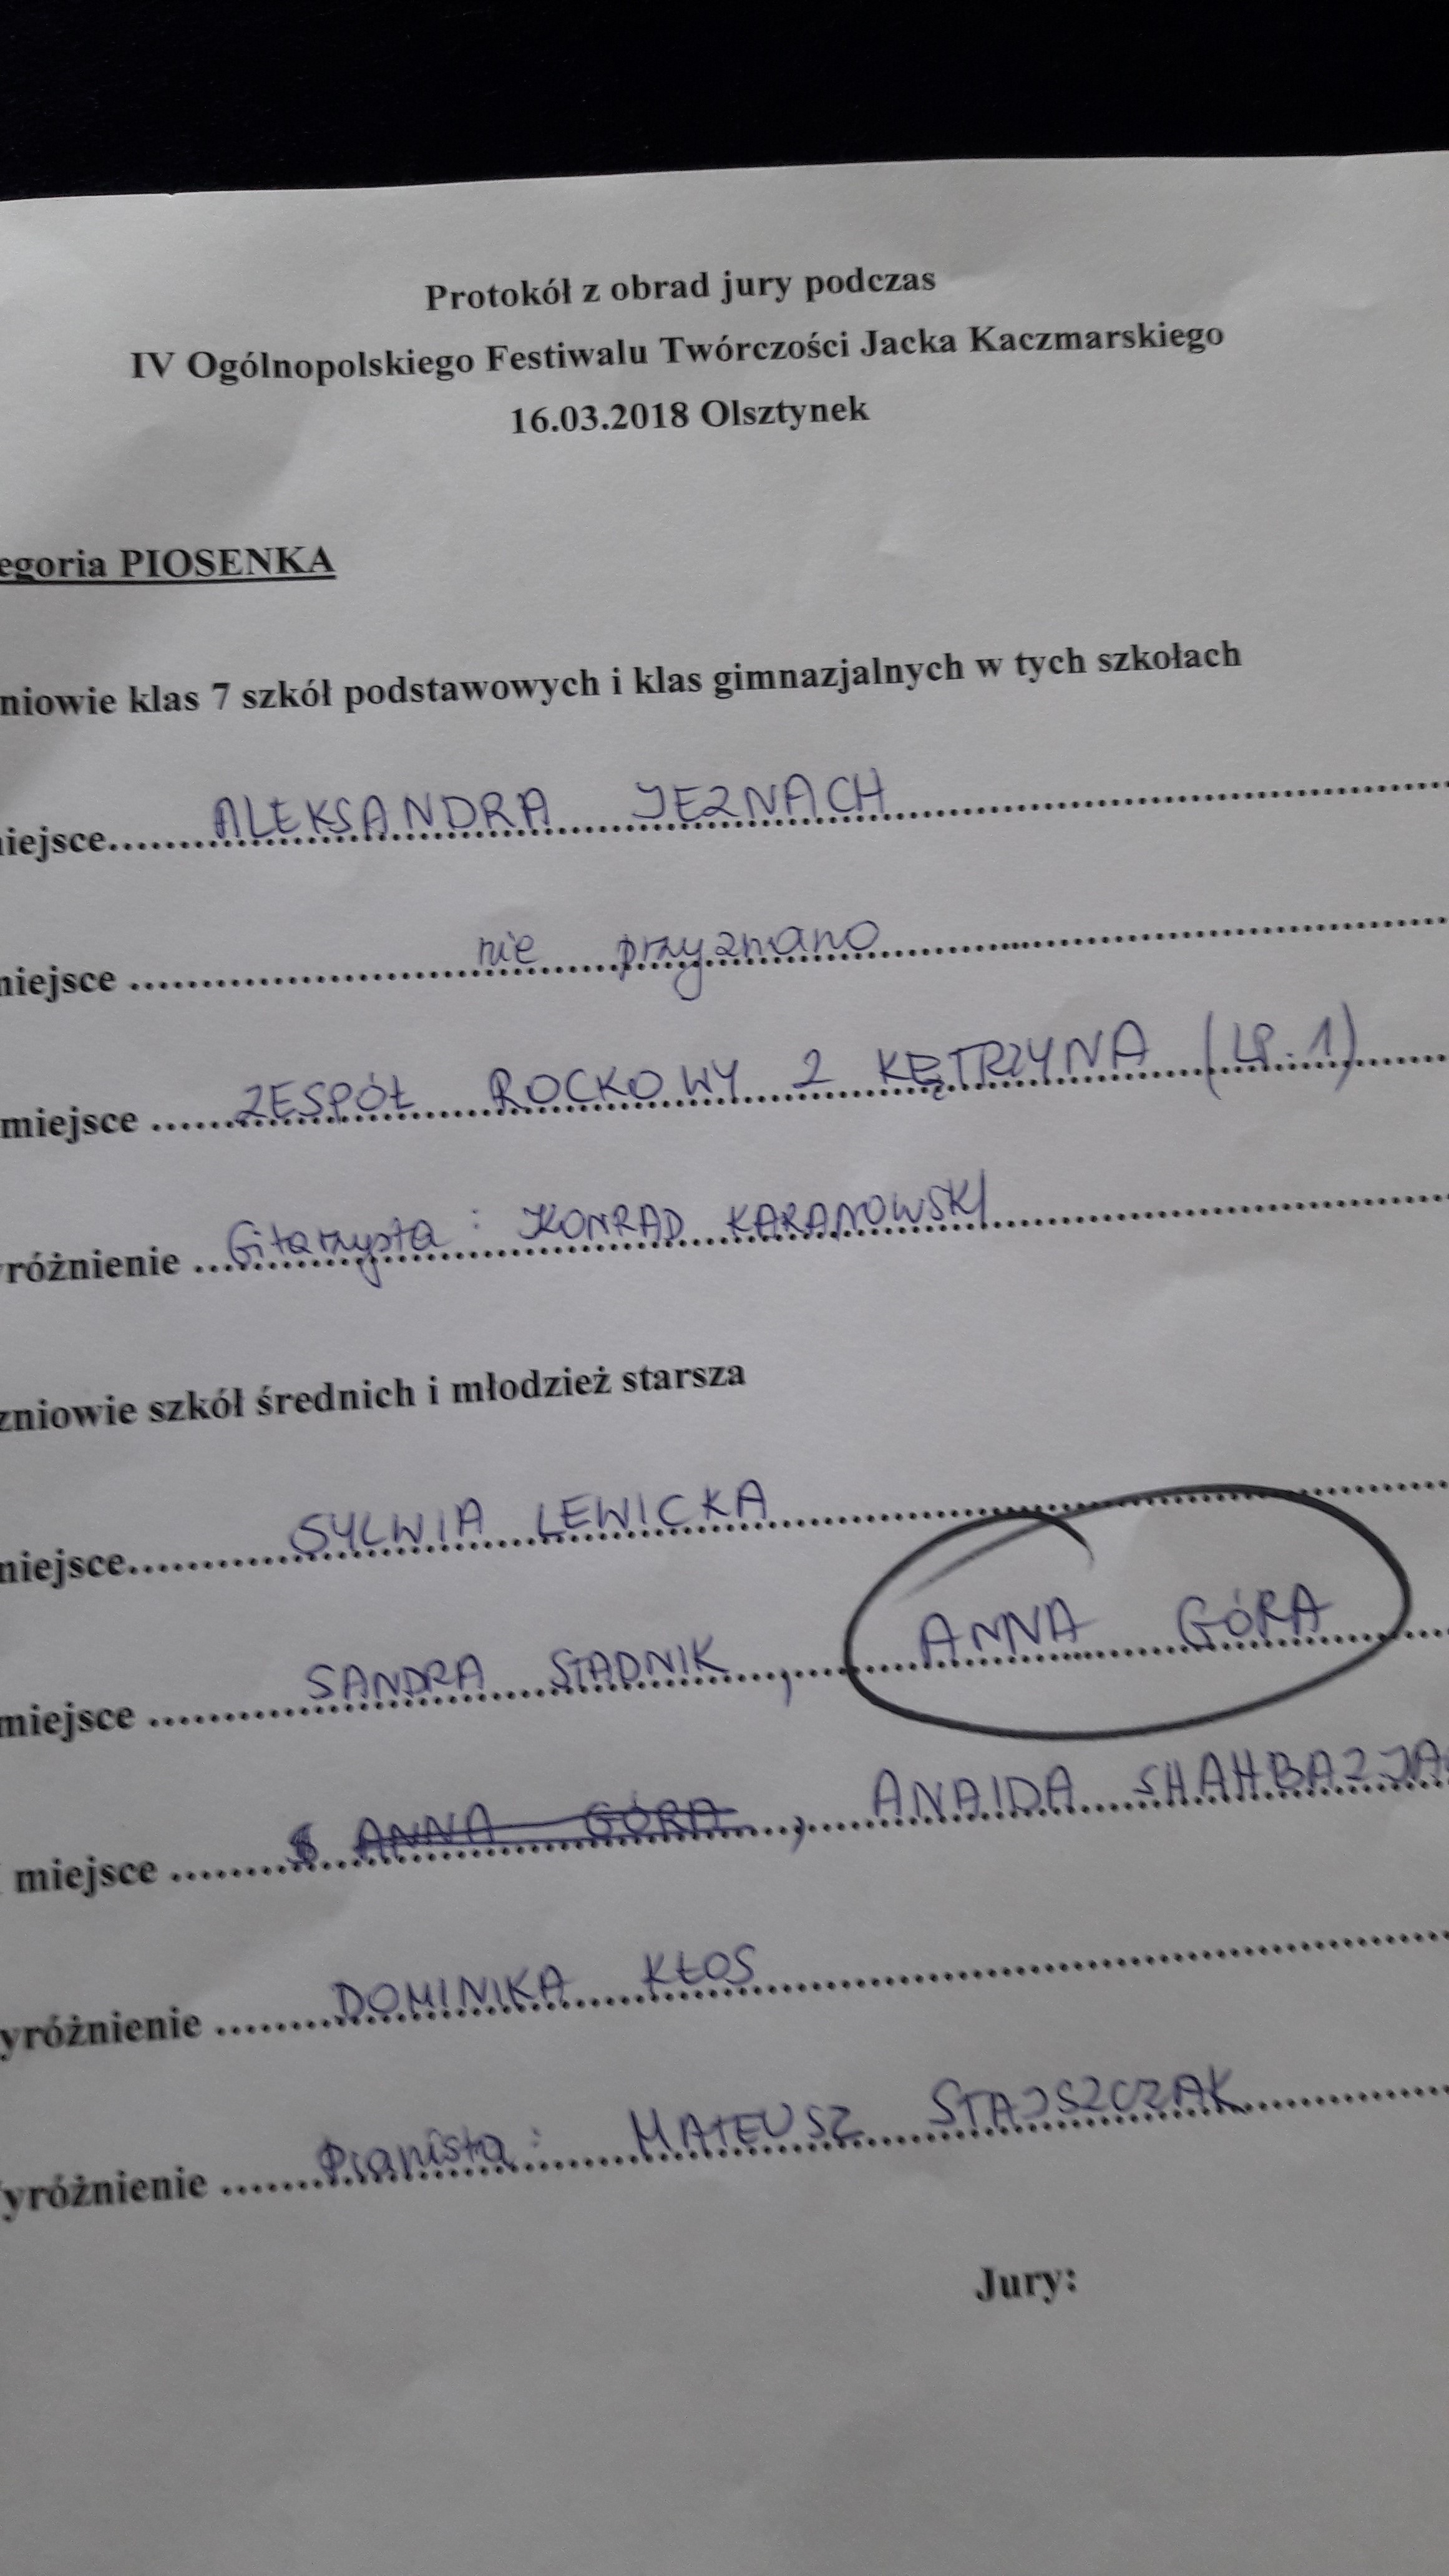 Protokół z obrad jury podczas
IV Ogólnopolskiego Festiwalu Twórczości Jacka Kaczmarskiego
16.03.2018 Olsztynek
egoria PIOSENKA
niowie klas 7 szkół podstawowych i klas gimnazjalnych w tych szkołach
iejsce.......ALEKSANDRA JEZNACH..........
miejsce ..........nie przyznano..........
miejsce ......ZESPÓŁ ROCKOWY Z KĘTRZYNA (LP. 1)......
różnienie ...Gitarzysta : KONRAD KARANOWSKI..........
zniowie szkół średnich i młodzież starsza
miejsce..........SYLWIA LEWICKA..........
miejsce ..........SANDRA STADNIK, ANNA GÓRA......
miejsce ........ANNA GÓRA, ANAIDA SHAHBAZJA
yróżnienie ........DOMINIKA KŁOS..........
yróżnienie .......Pianista: MATEUSZ STAJSZCZAK..........
Jury: